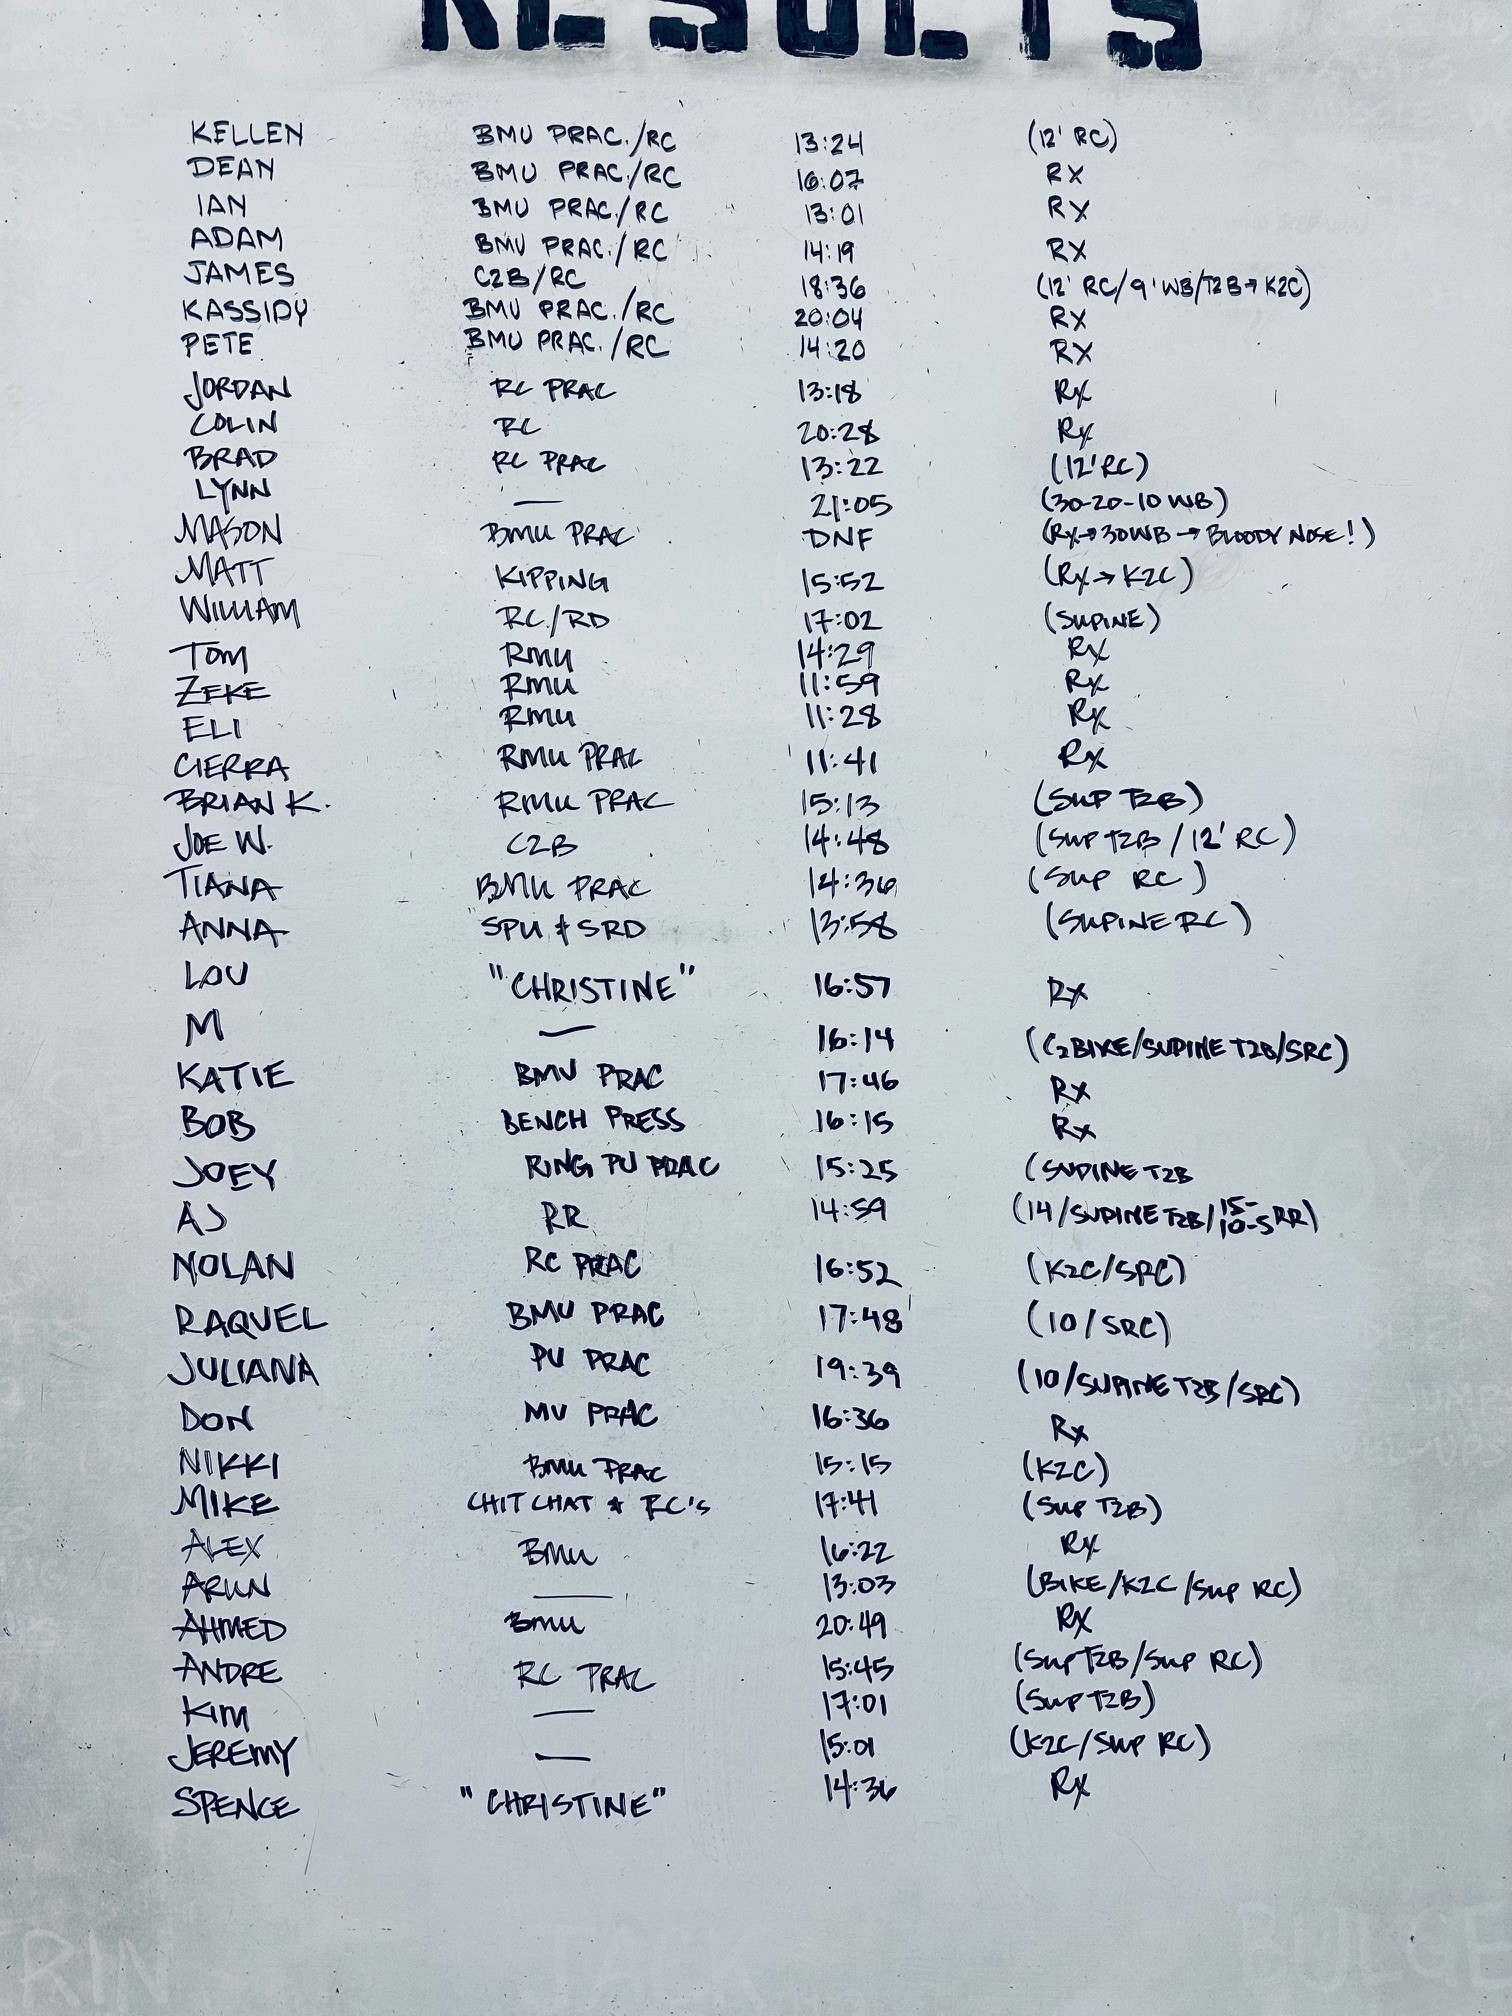 RESULTS
KELLEN BMU PRAC./RC 13:24 (12' RC)
DEAN BMU PRAC./RC 16:07 RX
IAN BMU PRAC./RC 13:01 RX
ADAM BMU PRAC./RC 14:19 RX
JAMES C2B/RC 18:36 (12' RC/9' WB/T2B→K2C)
KASSIDY BMU PRAC./RC 20:04 RX
PETE BMU PRAC./RC 14:20 RX
JORDAN RC PRAC 13:18 Rx
COLIN RC 20:28 Rx
BRAD RC PRAC 13:22 (12' RC)
LYNN — 21:05 (30-20-10 WB)
MASON BMU PRAC DNF (Rx→30WB→BLOODY NOSE!)
MATT KIPPING 15:52 (Rx→K2C)
WILLIAM RC/RD 17:02 (SUPINE)
TOM RMU 14:29 Rx
ZEKE RMU 11:59 Rx
ELI RMU 11:28 Rx
CIERRA RMU PRAC 11:41 Rx
BRIAN K. RMU PRAC 15:13 (SUP T2B)
JOE W. C2B 14:48 (SUP T2B/12' RC)
TIANA BMU PRAC 14:36 (SUP RC)
ANNA SPU & SRD 13:58 (SUPINE RC)
LOU "CHRISTINE" 16:57 Rx
M — 16:14 (C2BIKE/SUPINE T2B/SRC)
KATIE BMU PRAC 17:46 Rx
BOB BENCH PRESS 16:15 Rx
JOEY RING PU PRAC 15:25 (SUPINE T2B
AJ RR 14:59 (14/SUPINE T2B/15-10-5 RR)
NOLAN RC PRAC 16:52 (K2C/SRC)
RAQUEL BMU PRAC 17:48 (10/SRC)
JULIANA PU PRAC 19:39 (10/SUPINE T2B/SRC)
DON MU PRAC 16:36 Rx
NIKKI BMU PRAC 15:15 (K2C)
MIKE CHIT CHAT & RC's 17:41 (SUP T2B)
ALEX BMU 16:22 Rx
ARUN — 13:03 (BIKE/K2C/SUP RC)
AHMED BMU 20:49 Rx
ANDRE RC PRAC 15:45 (SUP T2B/SUP RC)
KIM — 17:01 (SUP T2B)
JEREMY — 15:01 (K2C/SUP RC)
SPENCE "CHRISTINE" 14:36 Rx
RIN JACK BULGE